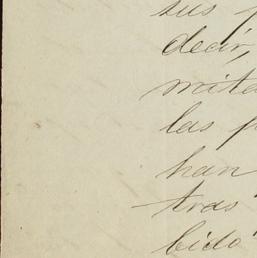 sus p
decir,
mita
las p
han
tras
bido